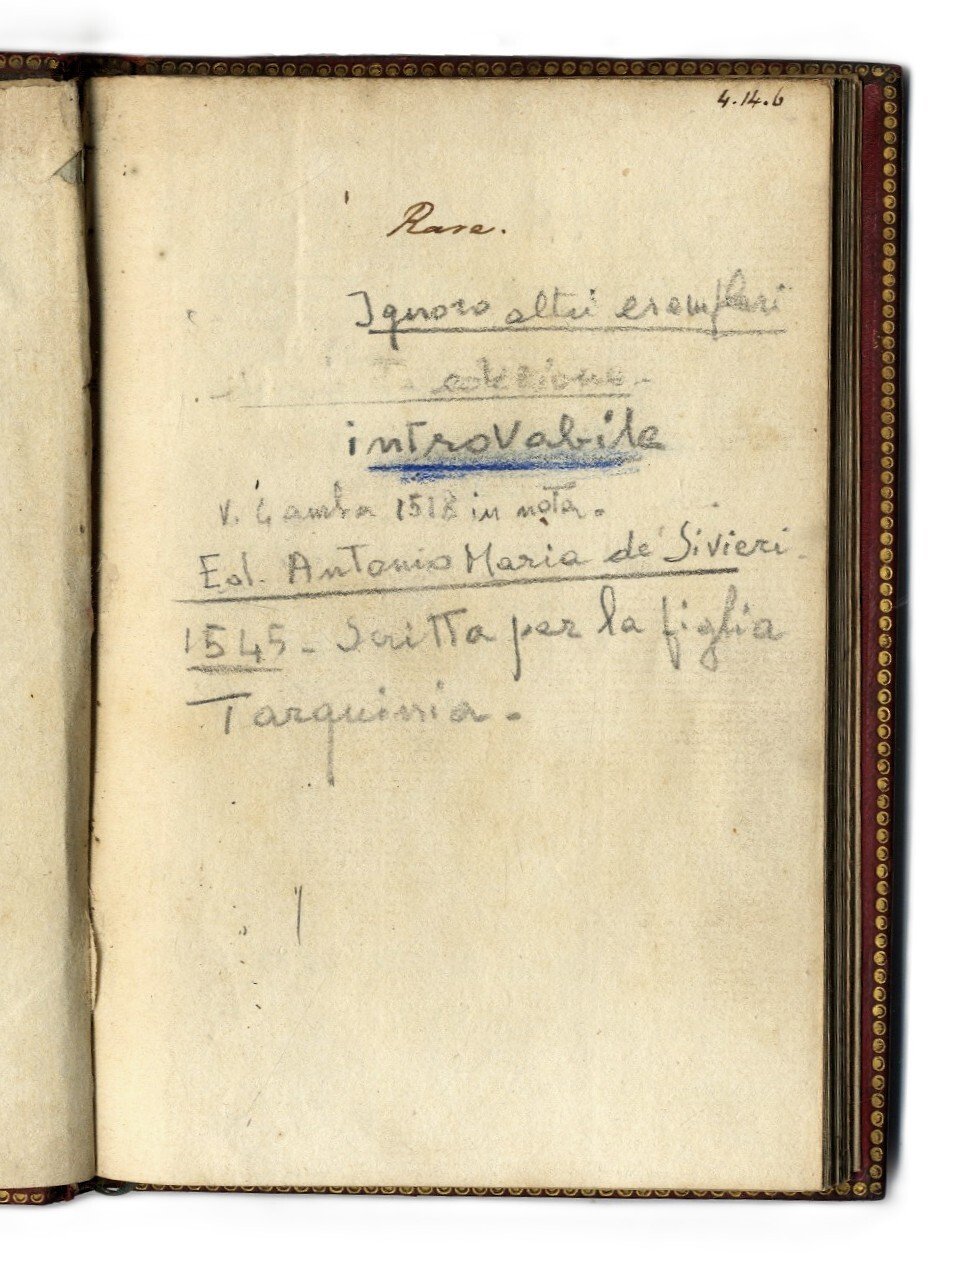 4.14.6
Rare.
Ignoro altri esemplari
edizione.
introvabile
v. Gamba 1518 in nota.
Ed. Antonio Maria de' Sivieri.
1545 - Scritta per la figlia
Tarquinia.